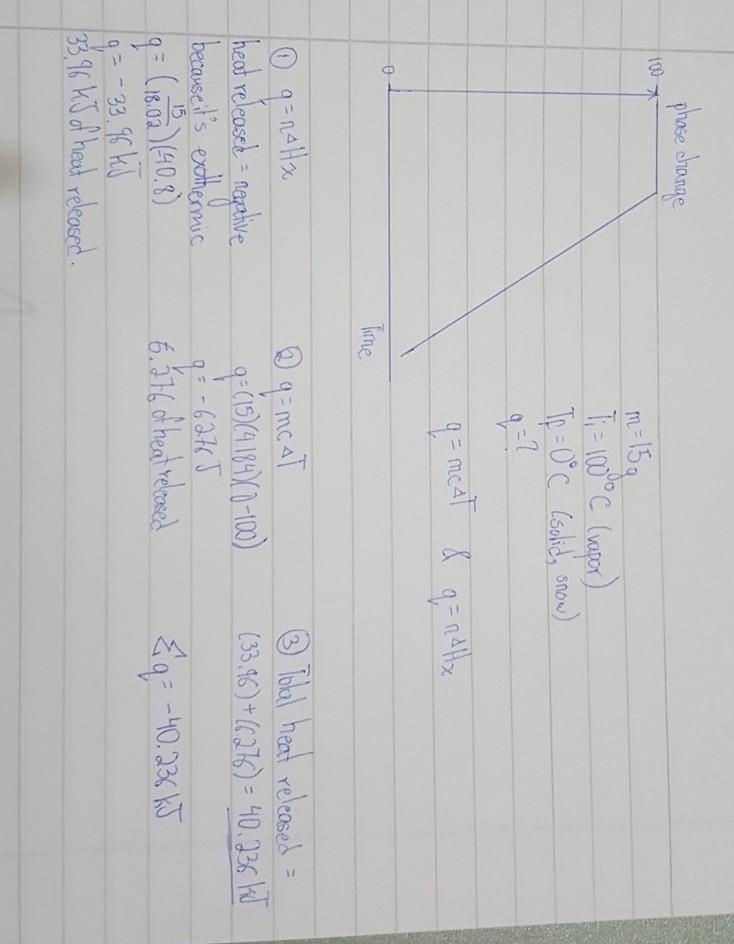 phase change
100
0
Time
m=15g
Ti=100°C (vapor)
TF=0°C (solid, snow)
q=?
q=mcΔT & q=nΔHx
① q=nΔHx
heat released = negative
because it's exothermic
q=(15/18.02)(-40.8)
q= -33.96 kJ
33.96 kJ of heat released.
② q=mcΔT
q=(15)(4.184)(0-100)
q= -6276 J
6.276 of heat released
③ Total heat released =
(33.96)+(6.276) = 40.236 kJ
Σq= -40.236 kJ